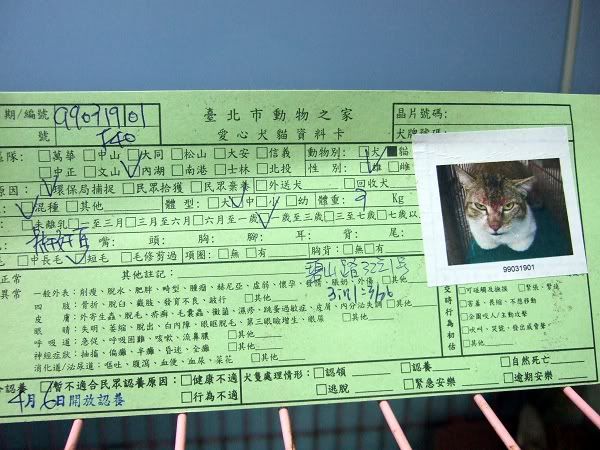 期/編號 99031901 臺北市動物之家 晶片號碼:
號 T40 愛心犬貓資料卡 犬牌號碼:
區隊: □萬華 □中山 □大同 □松山 □大安 □信義 動物別: □犬 ■貓
□中正 □文山 □內湖 □南港 □士林 □北投 性別: □雄 □雌
原因: □環保局捕捉 □民眾拾獲 □民眾棄養 □外送犬 □回收犬
□混種 □其他 體型: □大 □中 □小 □幼 體重: 9 Kg
□未離乳 □至三月 □三月至六月 □六月至一歲 □一歲至三歲 □三歲至七歲 □七歲以
嘴: 頭: 胸: 腳: 耳: 背: 尾:
毛 □中長毛 □短毛 □毛修剪過 項圈: □無 □有 胸背: □無 □有
99031901
正常 其他註記:
異常 一般外表: 削瘦、脫水、肥胖、畸型、腫瘤、赫尼亞、虛弱、懷孕、發情、脹奶、外傷 □其他
四肢: 骨折、脫臼、截肢、發育不良、跛行 □其他 3in1
皮膚: 外寄生蟲、脫毛、疥癬、毛囊蟲、黴菌、濕疹、跳蚤過敏症、皮屑、內分泌失調 □其他
眼睛: 失明、萎縮、脫出、白內障、眼瞼脫毛、第三眼瞼增生、眼屎 □其他
呼吸道: 急促、呼吸困難、咳嗽、流鼻膿 □其他
神經症狀: 抽搐、偏癱、半癱、昏迷、全癱 □其他
消化道/泌尿道: 嘔吐、腹瀉、血便、血尿、尿苔 □其他
□可碰觸及撫摸 □緊張、緊繃
□害羞、畏縮、不想移動
□企圖咬人/主動攻擊
□吠叫、哭號、發出威脅聲
時行為初估
合認養 □暫不適合民眾認養原因: □健康不適 犬隻處理情形: □認領 □其他 □自然死亡
4月6日開放認養 □行為不適 □逃脫 □緊急安樂 □逾期安樂